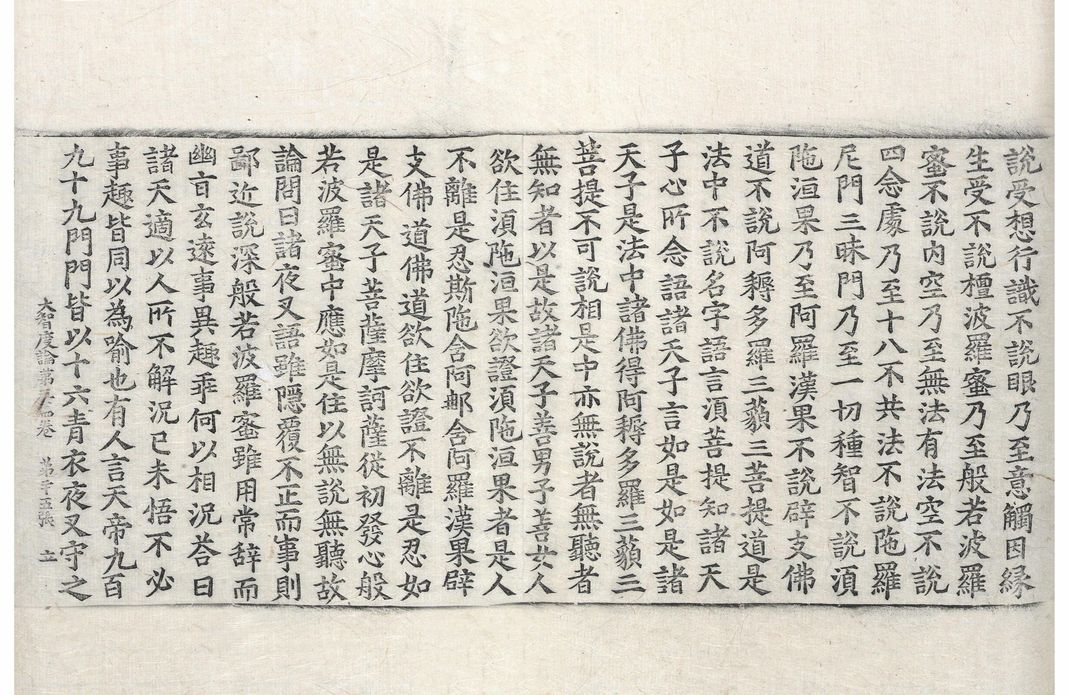 說受想行識不說眼乃至意觸因緣
生受不說檀波羅蜜乃至般若波羅
蜜不說內空乃至無法有法空不說
四念處乃至十八不共法不說陁羅
尼門三昧門乃至一切種智不說湏
陁洹果乃至阿羅漢果不說辟支佛
道不說阿耨多羅三藐三菩提道是
法中不說名字語言湏菩提知諸天
子心所念語諸天子言如是如是諸
天子是法中諸佛得阿耨多羅三藐三
菩提不可說相是中亦無說者無聽者
無知者以是故諸天子善男子善女人
欲住湏陁洹果欲證湏陁洹果者是人
不離是忍斯陁含阿那含阿羅漢果辟
支佛道佛道欲住欲證不離是忍如
是諸天子菩薩摩訶薩從初發心般
若波羅蜜中應如是住以無說無聽故
論問曰諸夜叉語雖隱覆不正而事則
鄙近說深般若波羅蜜雖用常辞而
幽旨玄遠事異趣乖何以相況荅曰
諸天適以人所不解況已未悟不必
事趣皆同以為喻也有人言天帝九百
九十九門門皆以十六青衣夜叉守之
大智度論第 卷 第 五張 立